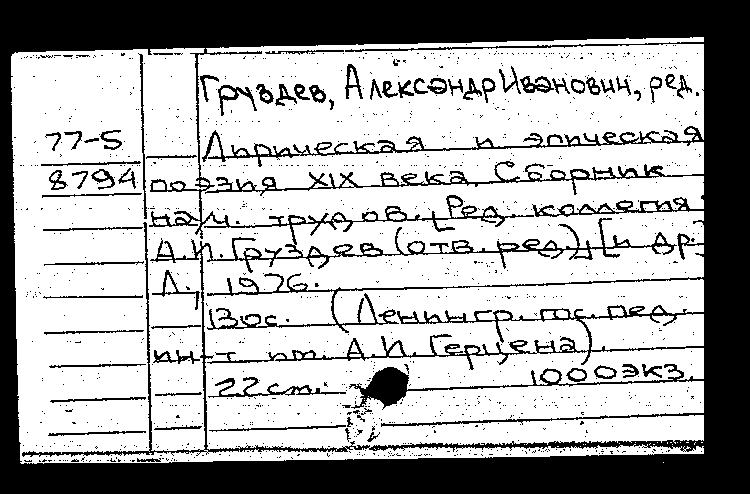 Груздев, Александр Иванович, ред.
77-5 Лирическая и эпическая
8794 поэзия XIX века. Сборник
науч. трудов. [Ред. коллегия:
А.И. Груздев (отв. ред.), [и др.]
Л., 1976.
130с. (Ленингр. гос. пед.
ин-т им. А.И. Герцена).
22 см. 1000 экз.